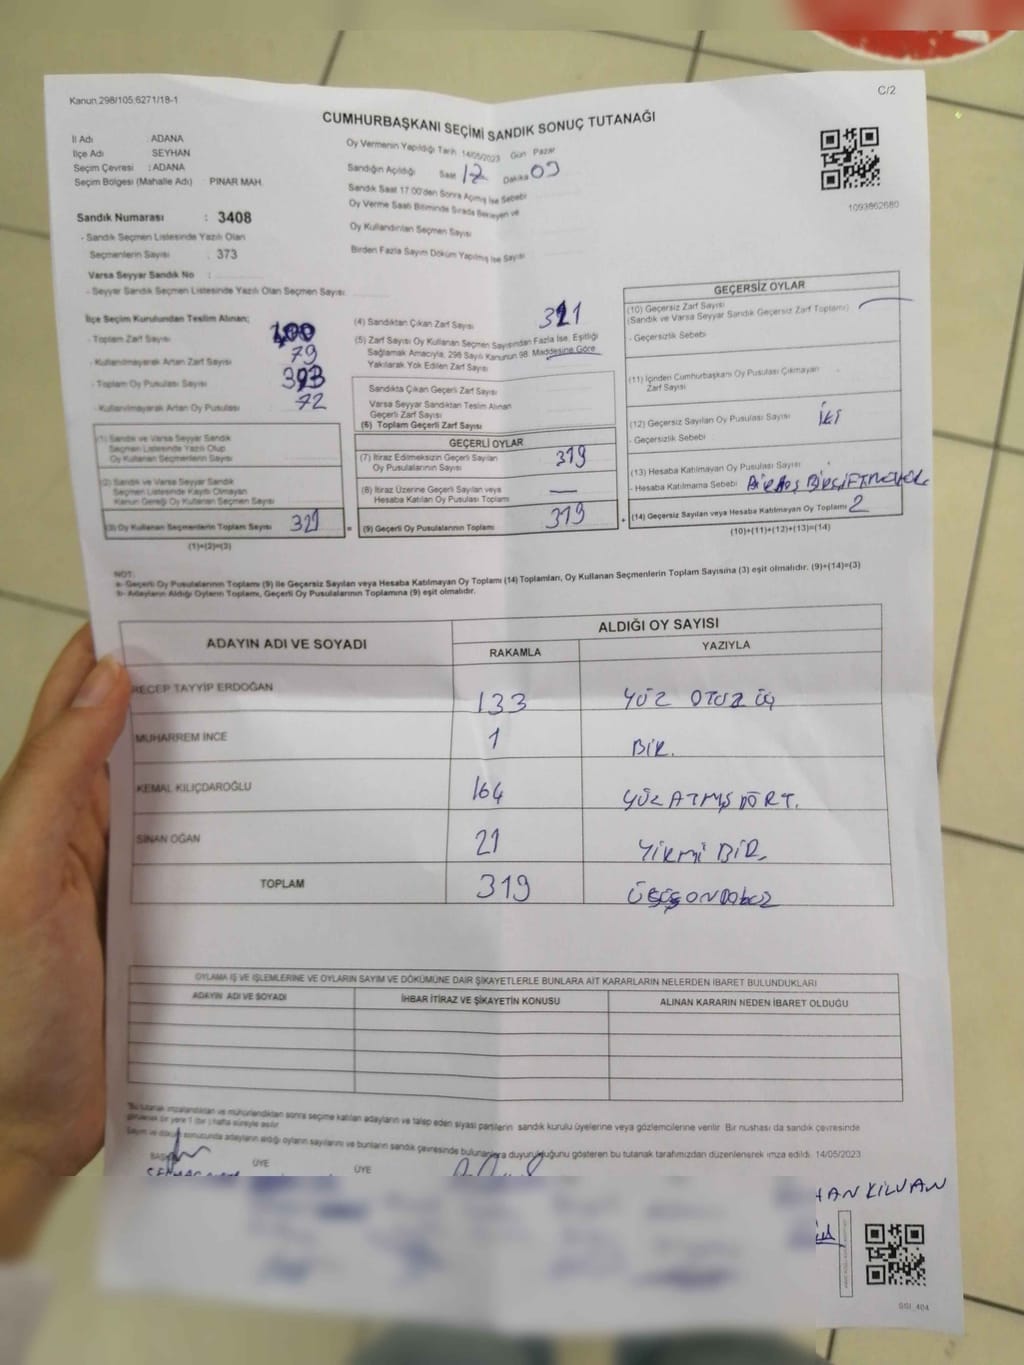 Kanun.298/105.6271/18-1
C/2
CUMHURBAŞKANI SEÇİMİ SANDIK SONUÇ TUTANAĞI
İl Adı : ADANA
İlçe Adı SEYHAN
Seçim Çevresi : ADANA
Seçim Bölgesi (Mahalle Adı) : PINAR MAH.
Sandık Numarası : 3408
- Sandık Seçmen Listesinde Yazılı Olan
Seçmenlerin Sayısı : 373
Varsa Seyyar Sandık No :
- Seyyar Sandık Seçmen Listesinde Yazılı Olan Seçmen Sayısı:
Oy Vermenin Yapıldığı Tarih 14/05/2023 Gün Pazar
Sandığın Açıldığı Saat 17 Dakika 09
Sandık Saat 17.00'den Sonra Açılmış İse Sebebi
Oy Verme Saati Bitiminde Sırada Bekleyen ve
Oy Kullandırılan Seçmen Sayısı
Birden Fazla Sayım Döküm Yapılmış İse Sayısı
1093862680
İlçe Seçim Kurulundan Teslim Alınan;
- Toplam Zarf Sayısı 400
- Kullanılmayarak Artan Zarf Sayısı 79
- Toplam Oy Pusulası Sayısı 393
- Kullanılmayarak Artan Oy Pusulası 72
(1) Sandık ve Varsa Seyyar Sandık
Seçmen Listesinde Yazılı Olup
Oy Kullanan Seçmenlerin Sayısı
(2) Sandık ve Varsa Seyyar Sandık
Seçmen Listesinde Kayıtlı Olmayan
Kanun Gereği Oy Kullanan Seçmen Sayısı
(3) Oy Kullanan Seçmenlerin Toplam Sayısı 321 =
(1)+(2)=(3)
(4) Sandıktan Çıkan Zarf Sayısı 321
(5) Zarf Sayısı Oy Kullanan Seçmen Sayısından Fazla İse, Eşitliği
Sağlamak Amacıyla, 298 Sayılı Kanunun 98. Maddesine Göre
Yakılarak Yok Edilen Zarf Sayısı
Sandıkta Çıkan Geçerli Zarf Sayısı
Varsa Seyyar Sandıktan Teslim Alınan
Geçerli Zarf Sayısı
(6) Toplam Geçerli Zarf Sayısı
GEÇERLİ OYLAR
(7) İtiraz Edilmeksizin Geçerli Sayılan
Oy Pusulalarının Sayısı 319
(8) İtiraz Üzerine Geçerli Sayılan veya
Hesaba Katılan Oy Pusulası Toplamı —
(9) Geçerli Oy Pusulalarının Toplamı 319 +
GEÇERSİZ OYLAR
(10) Geçersiz Zarf Sayısı
(Sandık ve Varsa Seyyar Sandık Geçersiz Zarf Toplamı)
- Geçersizlik Sebebi
(11) İçinden Cumhurbaşkanı Oy Pusulası Çıkmayan
Zarf Sayısı
(12) Geçersiz Sayılan Oy Pusulası Sayısı İKİ
- Geçersizlik Sebebi
(13) Hesaba Katılmayan Oy Pusulası Sayısı
- Hesaba Katılmama Sebebi
(14) Geçersiz Sayılan veya Hesaba Katılmayan Oy Toplamı 2
(10)+(11)+(12)+(13)=(14)
NOT:
a- Geçerli Oy Pusulalarının Toplamı (9) ile Geçersiz Sayılan veya Hesaba Katılmayan Oy Toplamı (14) Toplamları, Oy Kullanan Seçmenlerin Toplam Sayısına (3) eşit olmalıdır. (9)+(14)=(3)
b- Adayların Aldığı Oyların Toplamı, Geçerli Oy Pusulalarının Toplamına (9) eşit olmalıdır.
ADAYIN ADI VE SOYADI ALDIĞI OY SAYISI
RAKAMLA YAZIYLA
RECEP TAYYİP ERDOĞAN 133 YÜZ OTUZ ÜÇ
MUHARREM İNCE 1 BİR.
KEMAL KILIÇDAROĞLU 164 YÜZ ATMIŞ DÖRT.
SİNAN OĞAN 21 YİRMİ BİR.
TOPLAM 319
OYLAMA İŞ VE İŞLEMLERİNE VE OYLARIN SAYIM VE DÖKÜMÜNE DAİR ŞİKAYETLERLE BUNLARA AİT KARARLARIN NELERDEN İBARET BULUNDUKLARI
ADAYIN ADI VE SOYADI İHBAR İTİRAZ VE ŞİKAYETİN KONUSU ALINAN KARARIN NEDEN İBARET OLDUĞU
*Bu tutanak imzalandıktan ve mühürlendikten sonra seçime katılan adayların ve talep eden siyasi partilerin sandık kurulu üyelerine veya gözlemcilerine verilir. Bir nushası da sandık çevresinde
görülecek bir yere 1 (bir) hafta süreyle asılır
Sayım ve döküm sonucunda adayların aldığı oyların sayılarını ve bunların sandık çevresinde bulunanlara duyurulduğunu gösteren bu tutanak tarafımızdan düzenlenerek imza edildi. 14/05/2023
ÜYE ÜYE
HAN KILVAN